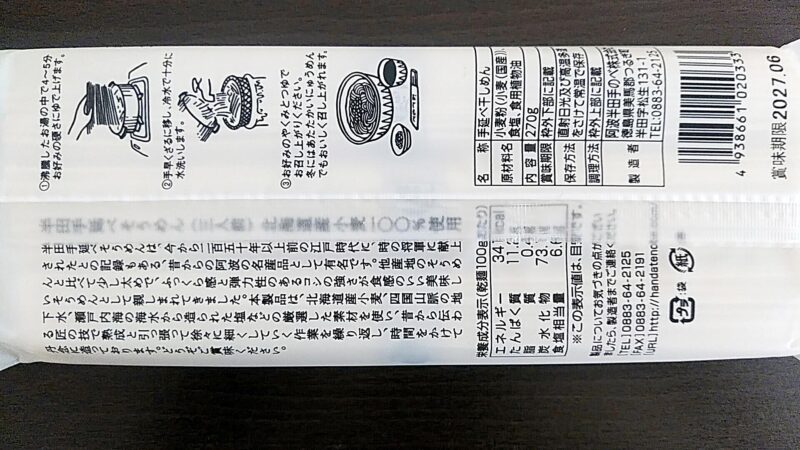 ①沸騰したお湯の中で4～5分
お好みの硬さにゆで上げます。
②手早くざるに移し、冷水で十分に
水洗いします。
③お好みのやくみとつゆで
お召し上がりください。
冬にはあたたかいにゅうめん
でもおいしく召し上がれます。
名称 手延べ干しめん
原材料名 小麦粉(小麦(国産))、
食塩、食用植物油
内容量 270g
賞味期限 枠外下部に記載
保存方法 直射日光及び高温多
をさけて常温で保存
調理方法 枠外上部に記載
製造者 阿波半田手のべ株式会
徳島県美馬郡つるぎ町
半田字松生131-1
TEL:0883-64-2125
4 938661 020333
賞味期限 2027.06
半田手延べそうめん（三人前）北海道産小麦一〇〇％使用
半田手延べそうめんは、今から二百五十年以上前の江戸時代に、時の将軍に献上
されたとの記録もある昔からの阿波の名産品として有名です。他産地のそうめ
んと比べて少し太めで、ふっくら感と弾力性のあるコシの強さが食感のいい美味し
いそうめんとして親しまれてきました。本製品は、北海道産小麦、四国山脈の地
下水、瀬戸内海の海水から造られた塩などの厳選した素材を使い、昔から伝わ
る匠の技で熟成と引っ張って徐々に細くしていく作業を繰り返し、時間をかけて
丹念に造っております。どうぞご賞味ください。
栄養成分表示(乾麺100g当たり)
エネルギー 341kcal
たんぱく質 11.2g
脂質
炭水化物
食塩相当量
※この表示値は、目安です。
製品についてお気づきの点がござい
ましたら、製造者までご連絡ください
[TEL]0883-64-2125
[FAX]0883-64-2191
[URL]http://handatenobe.com/
プラ
袋
紙
帯